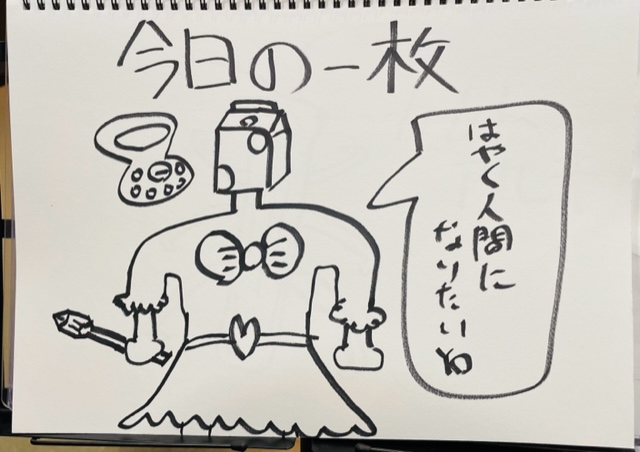 今日の一枚
はやく人間に
なりたいyo